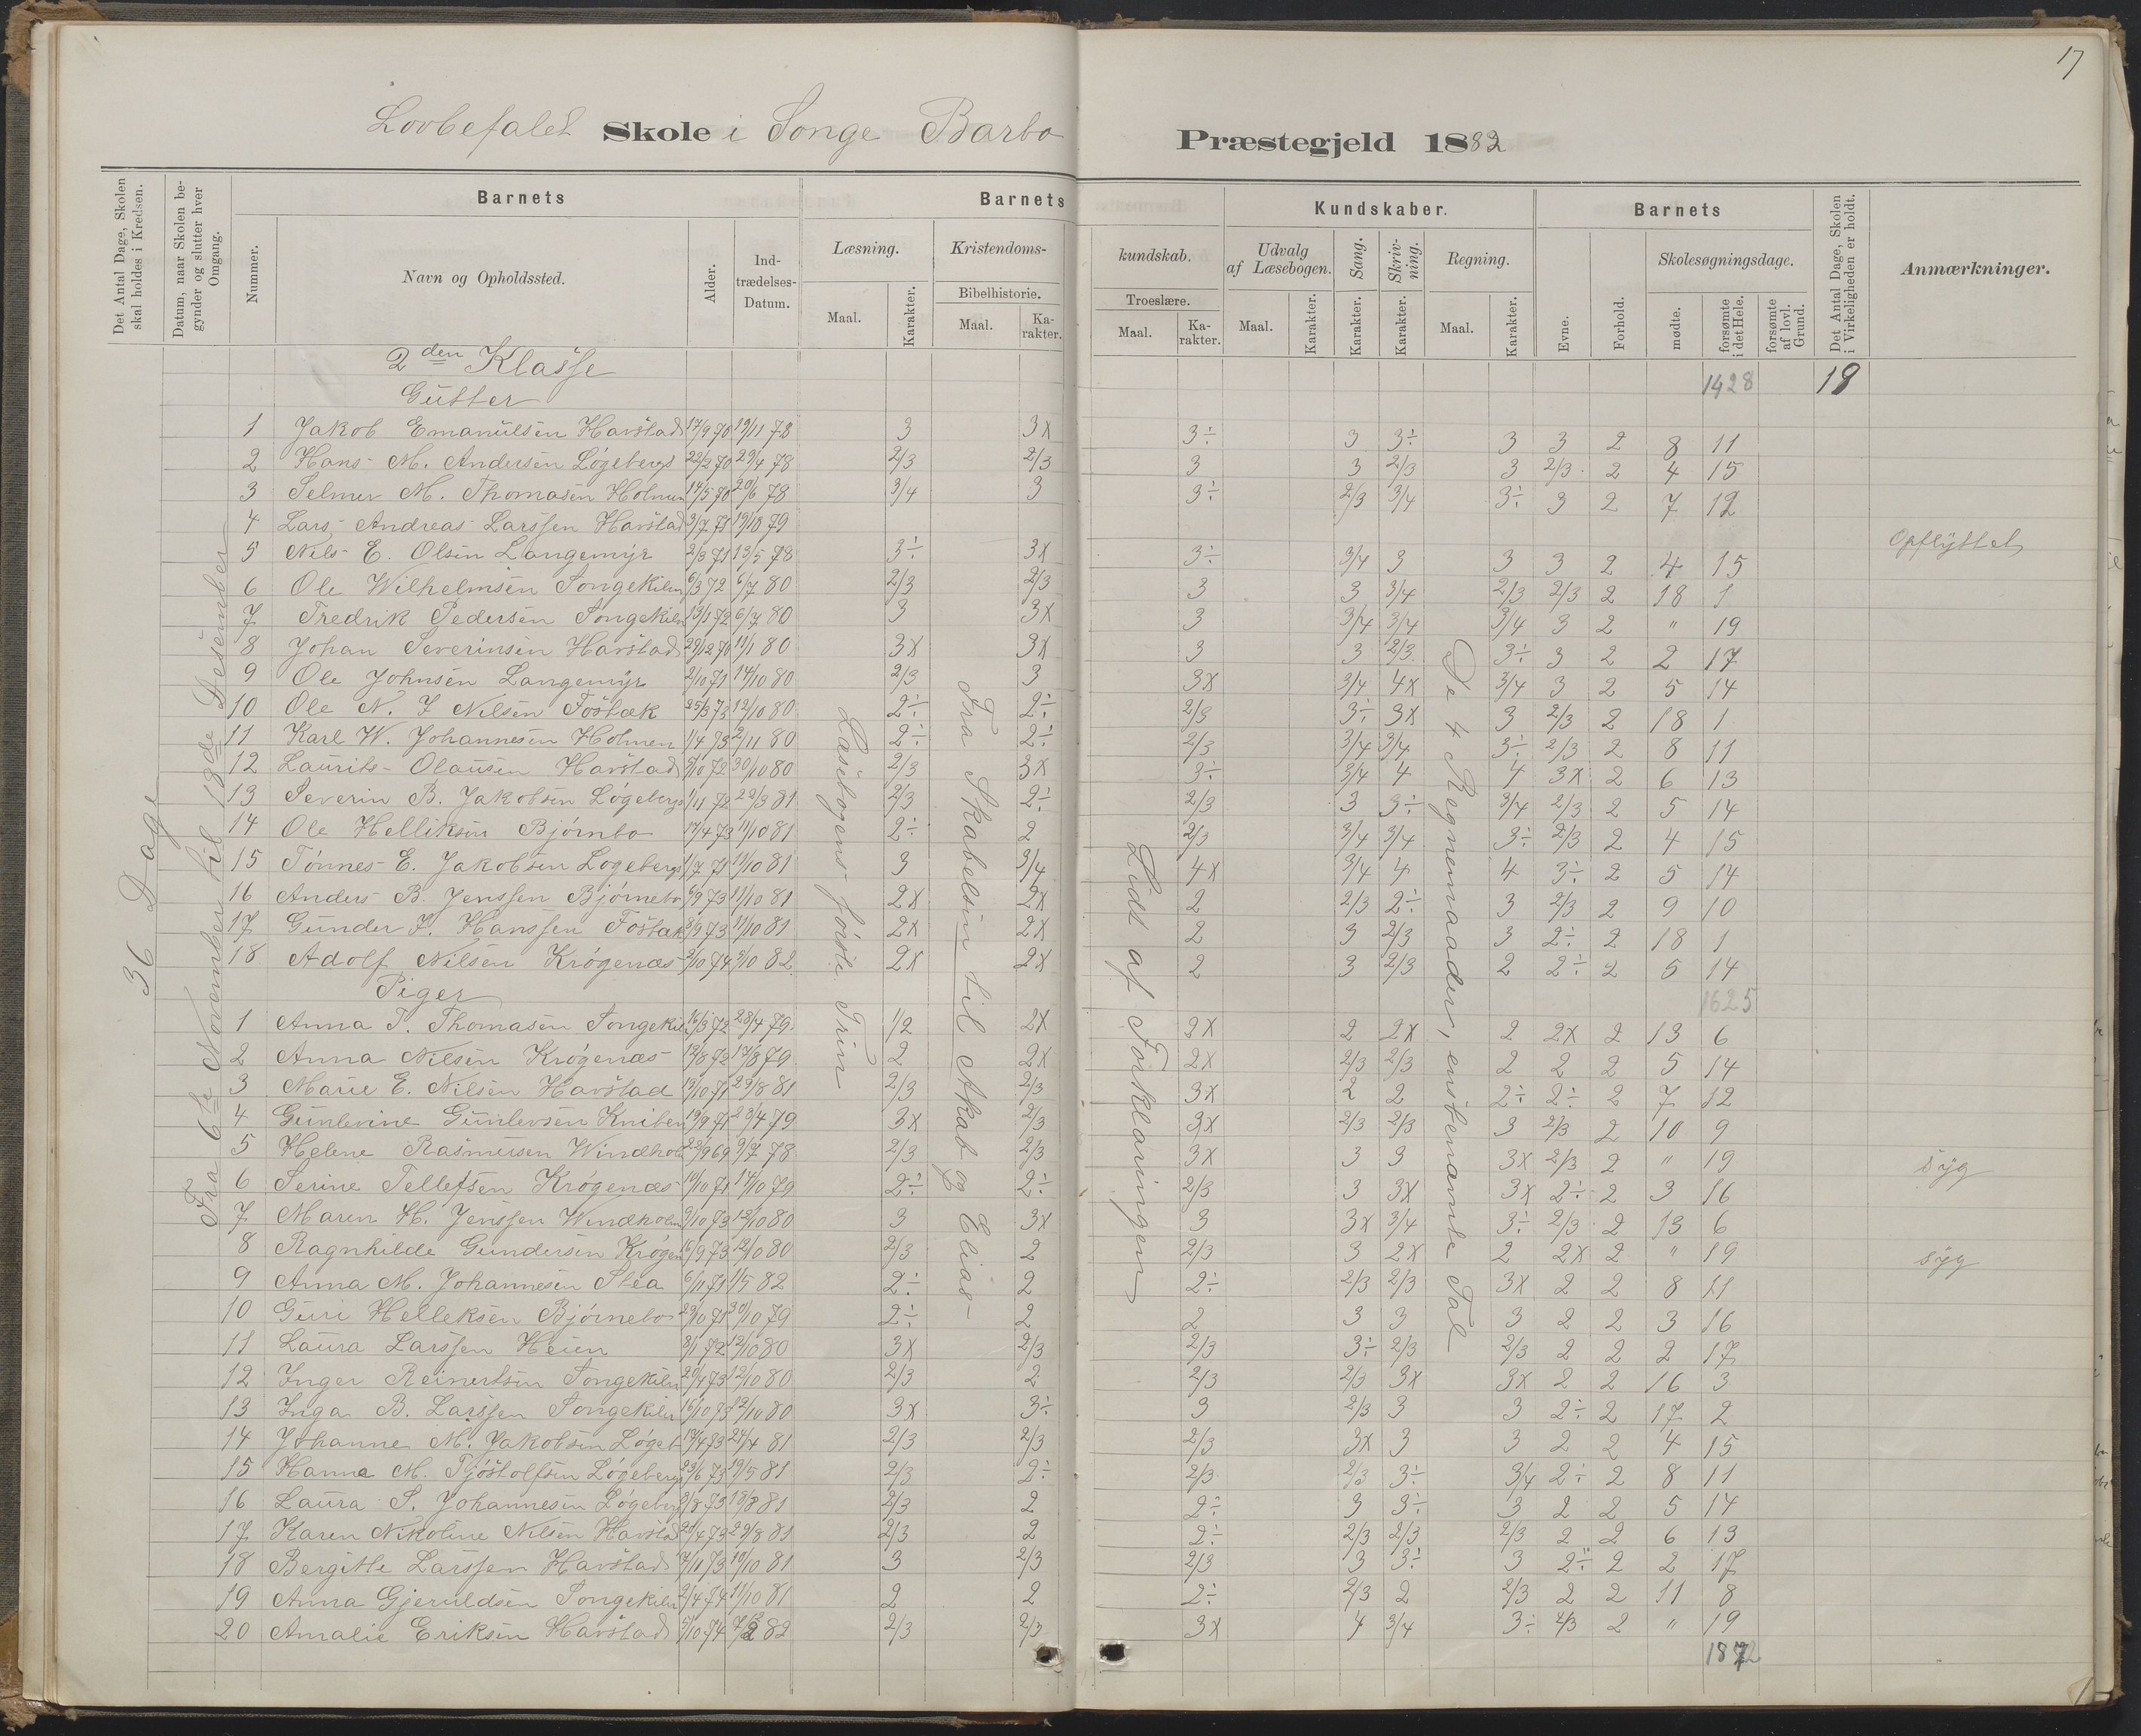 17
Lovbefalet Skole i Songe Barbo Præstegjeld 1882
Det Antal Dage, Skolen skal holdes i Kredsen.
Datum, naar Skolen begynder og slutter hver Omgang.
Nummer.
Barnets
Navn og Opholdssted.
Alder.
Indtrædelses-Datum.
Barnets Kundskaber.
Læsning.
Maal.
Karakter.
Kristendoms-kundskab.
Bibelhistorie.
Maal.
Karakter.
Troeslære.
Maal.
Karakter.
Udvalg af Læsebogen.
Maal.
Karakter.
Sang.
Karakter.
Skrivning.
Karakter.
Regning.
Maal.
Karakter.
Barnets
Evne.
Forhold.
Skolesøgningsdage.
mødte.
forsømte i det Hele.
forsømte af lovl. Grund.
Det Antal Dage, Skolen i Virkeligheden er holdt.
Anmærkninger.
36 Dage
Fra 6te November til 18de Desember
Læsebogens første Trin
Fra Skabelsen til Akab og Elias
Lidt af Forklaringen
De 4 Regnemaader, ensbenævnte Tal
2den Klasse
1428 19
Gutter
1 Jakob Emanuelsen Havstad 17/9 70 19/11 78 3 3x 3÷ 3 3÷ 3 3 2 8 11
2 Hans M. Andersen Løgeberg 22/2 70 29/4 78 2/3 2/3 3 3 2/3 3 2/3 2 4 15
3 Selmer M. Thomasen Holmen 14/5 70 20/6 78 3/4 3 3÷ 2/3 3/4 3÷ 3 2 7 12
4 Lars Andreas Larssen Havstad 3/7 71 19/10 79 Opflyttet
5 Nils E. Olsen Langemyr 2/3 71 13/5 78 3÷ 3x 3÷ 3/4 3 3 3 2 4 15
6 Ole Wilhelmsen Songekilen 6/3 72 6/7 80 2/3 2/3 3 3 3/4 2/3 2/3 2 18 1
7 Fredrik Pedersen Songekilen 13/1 72 6/7 80 3 3x 3 3/4 3/4 3/4 3 2 " 19
8 Johan Severinsen Havstad 29/12 70 11/1 80 3x 3x 3 3 2/3 3÷ 3 2 2 17
9 Ole Johnsen Langemyr 2/10 71 14/10 80 2/3 3 3x 3/4 4x 3/4 3 2 5 14
10 Ole N. J Nilsen Fostæk 25/3 73 12/10 80 2÷ 2÷ 2/3 3÷ 3x 3 2/3 2 18 1
11 Karl W. Johannesen Holmen 1/4 73 2/11 80 2÷ 2÷ 2/3 3/4 3/4 3÷ 2/3 2 8 11
12 Laurits Olausen Havstad 5/10 72 30/10 80 2/3 3x 3÷ 3/4 4 4 3x 2 6 13
13 Severin B. Jakobsen Løgeberg 1/11 72 29/3 81 2/3 2÷ 2/3 3 3÷ 3/4 2/3 2 5 14
14 Ole Helliksen Bjørnbo 17/4 73 11/10 81 2÷ 2 2/3 3/4 3/4 3÷ 2/3 2 4 15
15 Tønnes E. Jakobsen Løgeberg 1/7 71 11/10 81 3 3/4 4x 3/4 4 4 3÷ 2 5 14
16 Anders B. Jenssen Bjørnebo 6/9 73 11/10 81 2x 2x 2 2/3 2÷ 3 2/3 2 9 10
17 Gunder J. Hanssen Fostæk 8/9 73 11/10 81 2x 2x 2 3 2/3 3 2÷ 2 18 1
18 Adolf Nilsen Krøgenæs 2/10 74 3/10 82 2x 2x 2 3 2/3 2 2÷ 2 5 14
Piger 1625
1 Anna T. Thomasen Songekil 16/3 72 28/4 79 1/2 2x 2x 2 2x 2 2x 2 13 6
2 Anna Nilsen Krøgenæs 12/8 72 17/3 79 2 2x 2x 2/3 2/3 2 2 2 5 14
3 Marie E. Nilsen Havstad 19/10 71 29/8 81 2/3 2/3 3x 2 2 2÷ 2÷ 2 7 12
4 Gunlevine Gunlevsen Kniben 19/9 71 23/4 79 3x 2/3 3x 2/3 2/3 3 2/3 2 10 9
5 Helene Rasmusen Windholm 22/9 69 9/7 78 2/3 2/3 3x 3 3 3x 2/3 2 " 19 syg
6 Serine Tellefsen Krøgenæs 19/10 71 14/10 79 2÷ 2÷ 2/3 3 3x 3x 2÷ 2 3 16
7 Maren H. Jenssen Windholm 9/10 73 12/10 80 3 3x 3 3x 3/4 3÷ 2/3 2 13 6
8 Ragnhilde Gundersen Krøgen 16/9 73 12/10 80 2/3 2 2/3 3 2x 2 2x 2 " 19 syg
9 Anna M. Johannesen Stea 6/11 71 1/5 82 2÷ 2 2÷ 2/3 2/3 3x 2 2 8 11
10 Guri Helleksen Bjørnebo 29/10 71 30/10 79 2÷ 2 2 3 3 3 2 2 3 16
11 Laura Larssen Heien 8/1 72 12/10 80 3x 2/3 2/3 3÷ 2/3 2/3 2 2 2 17
12 Inger Reinertsen Songekilen 20/4 73 12/10 80 2/3 2 2/3 2/3 3x 3x 2 2 16 3
13 Inga B. Larssen Songekilen 15/10 73 12/10 80 3x 3÷ 3 2/3 3 3 2÷ 2 17 2
14 Johanne M. Jakobsen Løgeb 17/4 73 24/4 81 2/3 2/3 2/3 3x 3 3 2 2 4 15
15 Hanna M. Tjøstolfsen Løgeberg 23/6 73 19/5 81 2/3 2÷ 2/3 2/3 3÷ 3/4 2÷ 2 8 11
16 Laura S. Johannesen Løgeberg 8/8 73 18/8 81 2/3 2 2÷ 3 3÷ 3 2 2 5 14
17 Karen Nikoline Nilsen Havstad 20/4 73 29/8 81 2/3 2 2÷ 2/3 2/3 2/3 2 2 6 13
18 Bergitte Larssen Havstad 7/11 73 10/10 81 3 2/3 2/3 3 3÷ 3 2÷ 2 2 17
19 Anna Gjeruldsen Songekilen 2/4 74 11/10 81 2 2 2÷ 2/3 2 2/3 2 2 11 8
20 Amalie Eriksen Havstad 5/10 74 7/2 82 2/3 2/3 3x 4 3/4 3÷ 2/3 2 " 19
1872